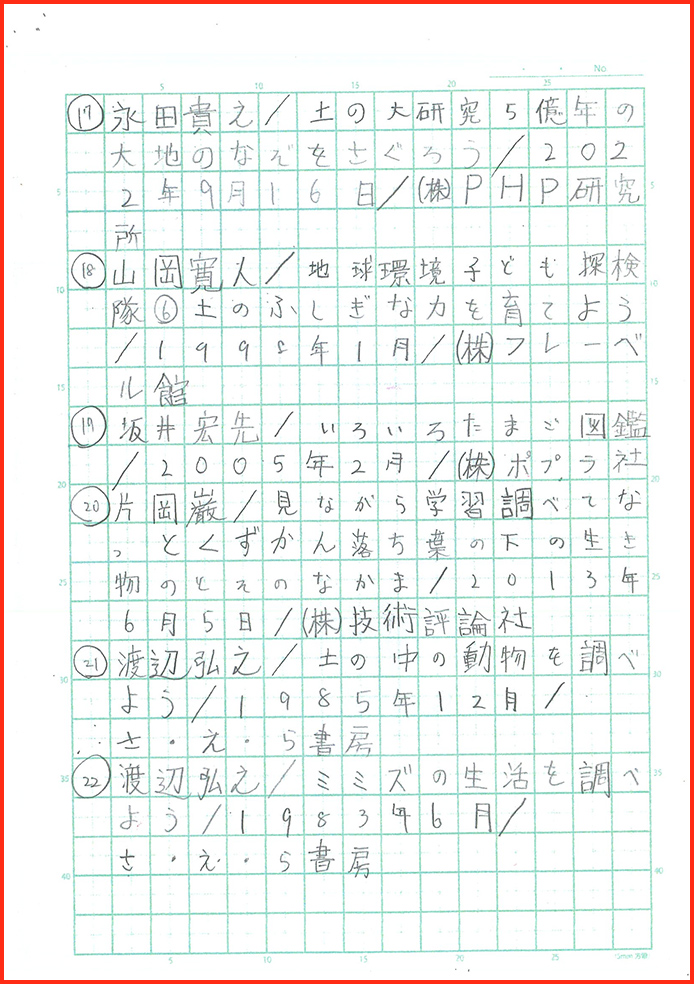 No.
5 10 15 20 25
⑰ 永田貴え/土の大研究5億年の
大地のなぞをさぐろう/202
2年9月16日/(株)PHP研究
所
⑱ 山岡寛人/地球環境子ども探検
隊⑥土のふしぎな力を育てよう
/1998年1月/(株)フレーベ
ル館
⑲ 坂井宏先/いろいろたまご図鑑
/2005年2月/(株)ポプラ社
⑳ 片岡巌/見ながら学習調べてな
っとくずかん落ち葉の下の生き
物のとそのなかま/2013年
6月5日/(株)技術評論社
㉑ 渡辺弘之/土の中の動物を調べ
よう/1985年12月/
さ・え・ら書房
㉒ 渡辺弘之/ミミズの生活を調べ
よう/1983年6月/
さ・え・ら書房
5 10 15 20 25